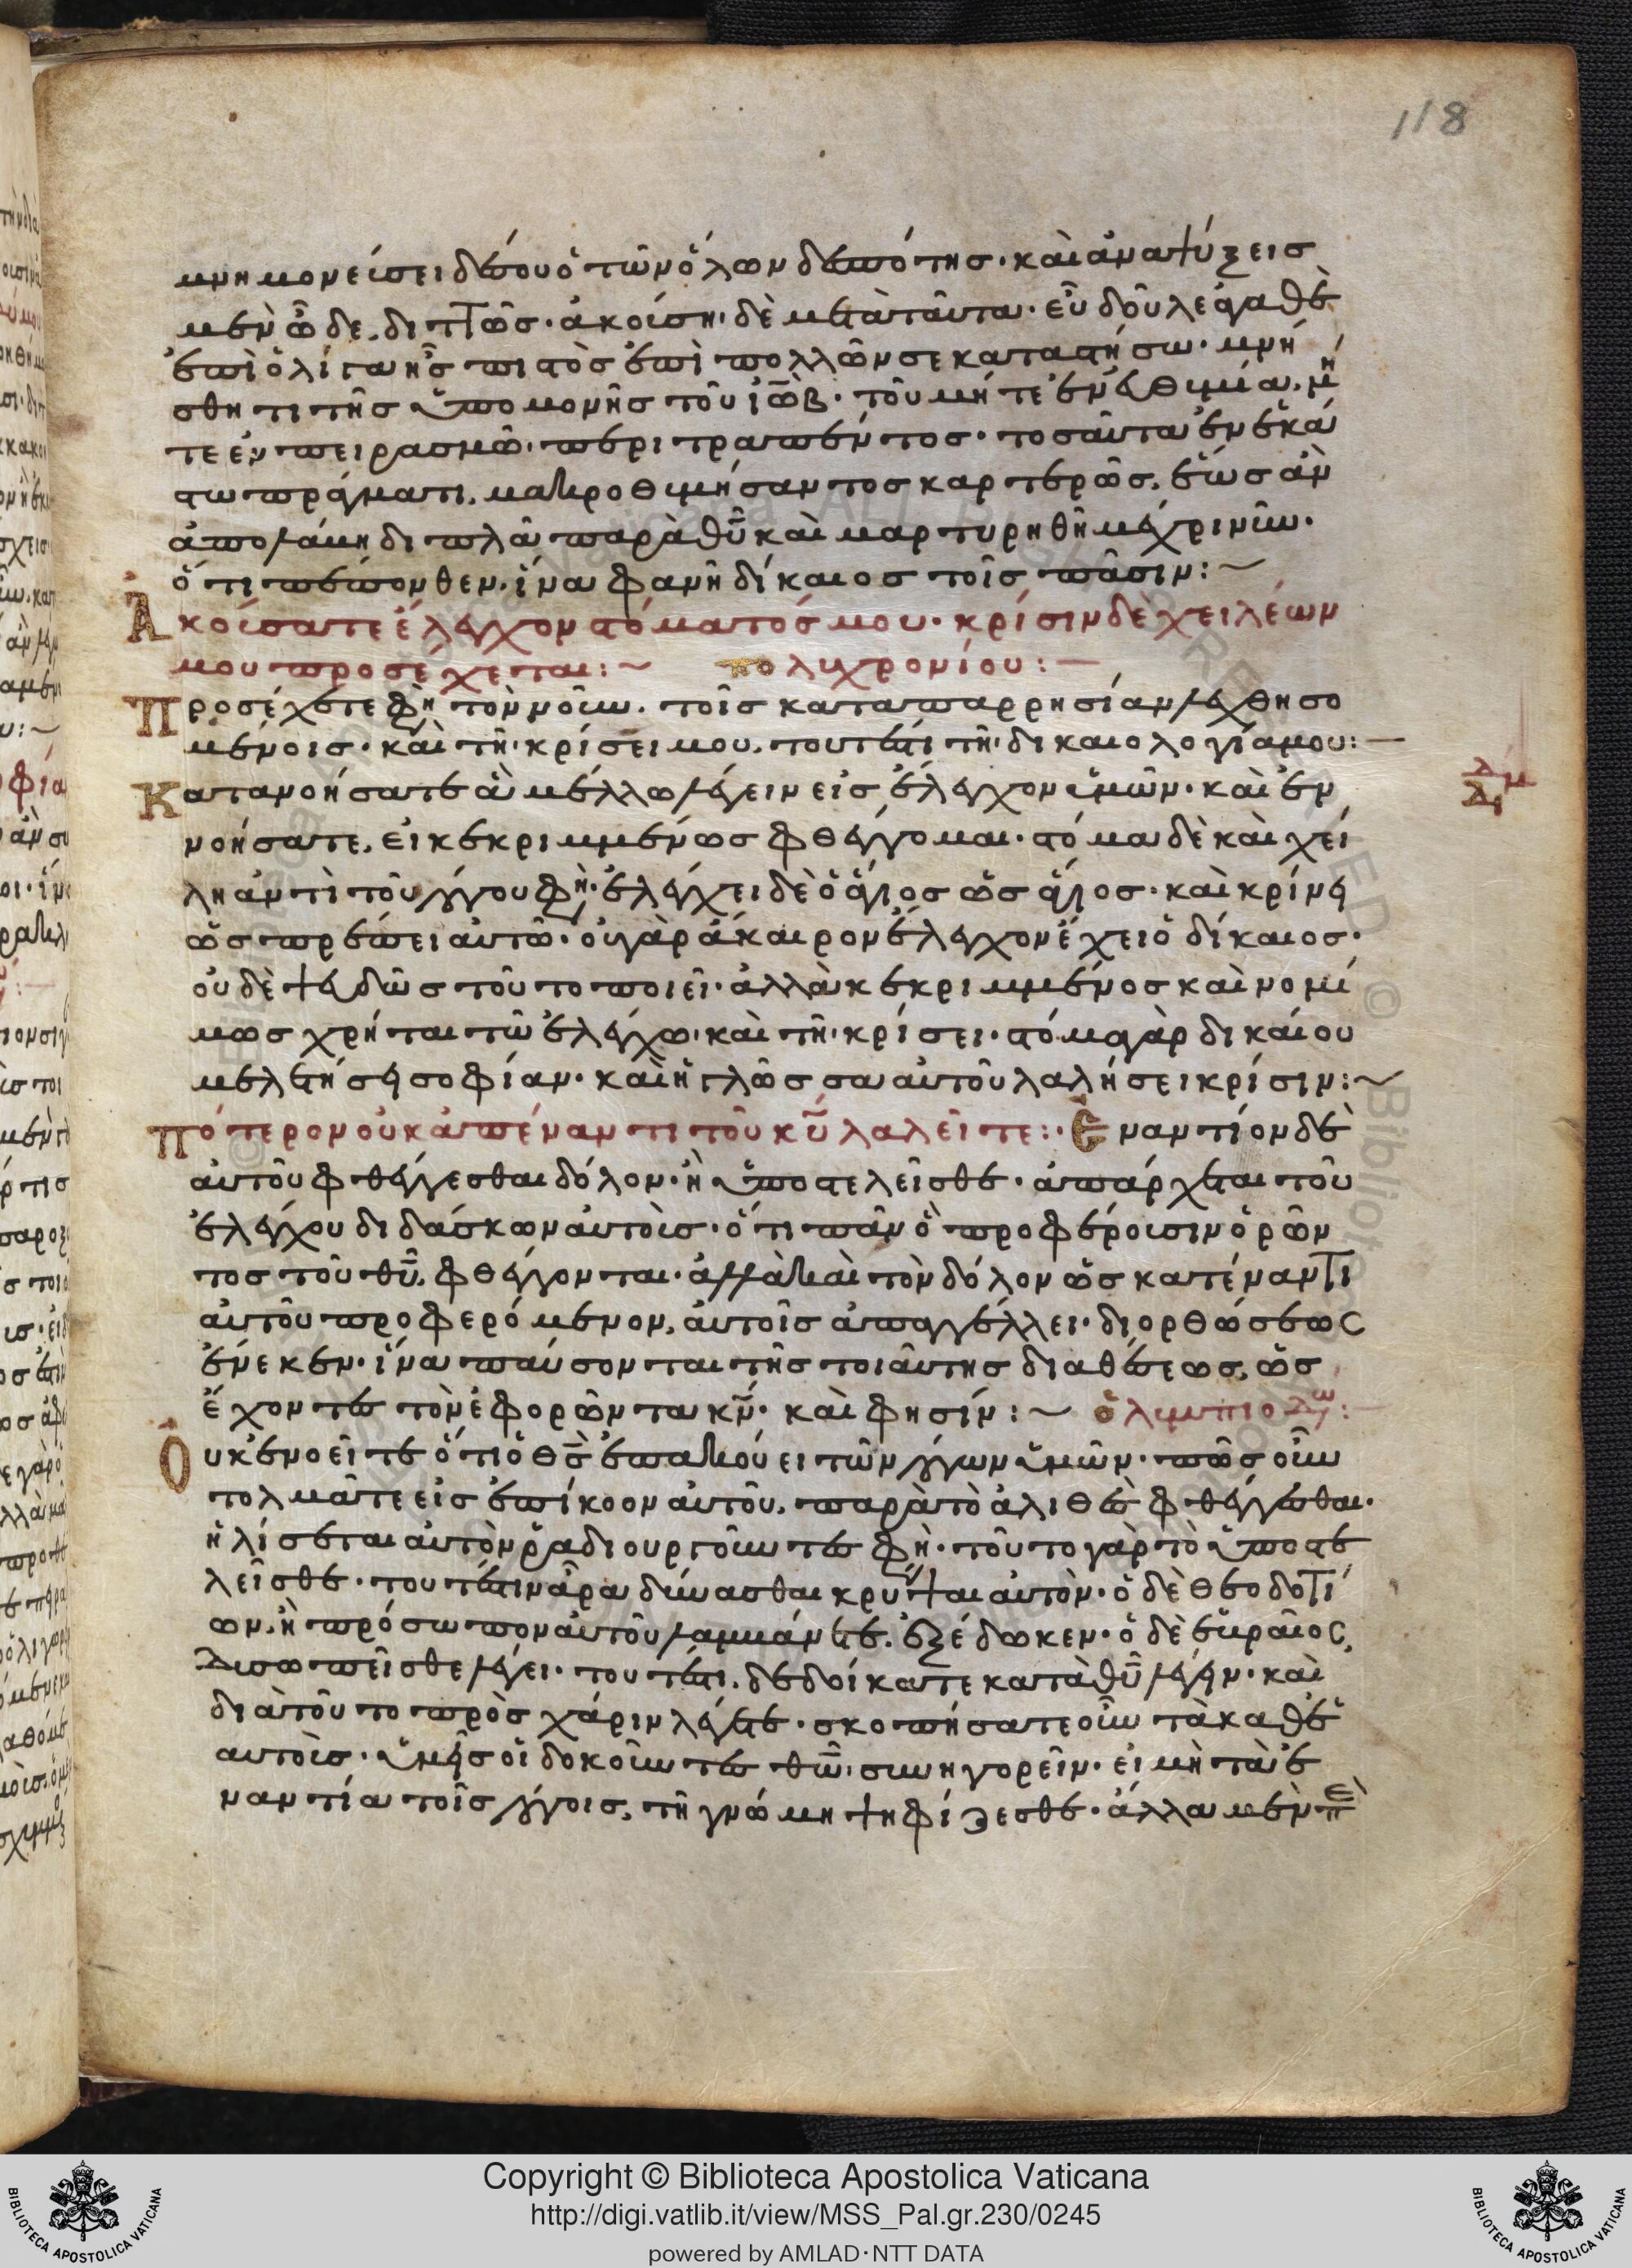 118
μνημονεύσει δέ σου ὁ τῶν ὅλων δεσπότης· καὶ ἀναψύξεις
μὲν ὧδε, διττῶς· ἀκούση δὲ μετὰ ταῦτα· εὖ δοῦλε ἀγαθὲ
ἐπὶ ὀλίγα ἦς πιστὸς ἐπὶ πολλῶν σε καταστήσω· μνή
σθητι τῆς ὑπομονῆς τοῦ ἰὼβ· τοῦ μήτε ἐν εὐθυμία, μή
τε ἐν πειρασμῶ, περιτραπέντος· τοσαῦτα ἐν ἑκά
στω πράγματι, μακροθυμήσαντος καρτερῶς, ἕως ἂν
ἀπολάβη διπλᾶ παρὰ θῦ καὶ μαρτυρηθῆ μέχρι νῦν·
ὅτι πέπονθεν, ἵνα φανῆ δίκαιος τοῖς πᾶσιν:~
Ἀκούσατε ἔλεγχον στόματός μου· κρίσιν δὲ χειλέων
μου προσέχεται:~ πολυχρονίου:—
Προσέχετε φη τὸν νοῦν· τοῖς κατὰ παρρησίαν λεχθησο
μένοις· καὶ τῆ κρίσει μου, τουτέστι τῆ δικαιολογία μου:—
Κατανοήσατε ἃ μέλλω λέγειν εἰς ἔλεγχον ὑμῶν· καὶ ἐν
νοήσατε, εἰ κεκριμμένως φθέγγομαι· στόμα δὲ καὶ χεί
λη ἀντὶ τοῦ λόγου φη· ἐλέγχει δὲ ὁ ἅγιος ὡς ἅγιος· καὶ κρίνει
ὡς πρέπει αὐτῶ· οὐ γὰρ ἄκαιρον ἔλεγχον ἔχει ὁ δίκαιος·
οὐδὲ ψευδῶς τοῦτο ποιεῖ· ἀλλὰ κεκριμμένος καὶ νομί
μως χρήται τῶ ἐλέγχω· καὶ τῆ κρίσει· στόμα γὰρ δικαίου
μελετήσει σοφίαν· καὶ ἡ γλῶσσα αὐτοῦ λαλήσει κρίσιν:~
πότερον οὐκ ἀπέναντι τοῦ κῦ λαλεῖτε: Ἐναντίον δὲ
αὐτοῦ φθέγγεσθαι δόλον· ἢ ὑποστελεῖσθε· ἀπάρχεται τοῦ
ἐλέγχου διδάσκων αὐτοὺς· ὅτι πᾶν ὃ προφέρουσιν ὁρῶν
τος τοῦ θῦ, φθέγγονται· ἀλλὰ καὶ τὸν δόλον ὡς κατέναντι
αὐτοῦ προφερόμενον, αὐτοῖς ἀπαγγέλλει· διορθώσεως
ἕνεκεν· ἵνα παύσονται τῆς τοιαύτης διαθέσεως, ὡς
ἔχοντες τὸν ἐφορῶντα κν· καὶ φησίν:~ ὀλυμπιοδω:
Οὐκ ἐνοεῖτε ὅτι ὁ θς ἐπακούει τῶν λόγων ὑμῶν· πῶς οὖν
τολμᾶτε εἰς ἐπίκοον αὐτοῦ, παρὰ τὸ ἀλιθὲς φθέγγεσθαι·
ἢ λίσεται αὐτὸν ῥαδιουργοῦντες φη· τοῦτο γὰρ τὸ ὑποστε
λεῖσθε· τουτέστιν ἆρα δύνασθαι κρύψαι αὐτὸν· ὁ δὲ θεοδοτί
ων, ἢ πρόσωπον αὐτοῦ λαμβάνετε, ἐξέδωκεν· ὁ δὲ ἑβραῖος,
δυσωπεῖσθε λέγει· τουτέστι, δεδοίκατε κατὰ θῦ λέγειν· καὶ
διὰ τοῦτο πρὸς χάριν λέγετε· σκοπήσατε οὖν τὰ καθ' ἑ
αυτοὺς· ὑμεῖς οἱ δοκοῦντες θῶ συνηγορεῖν· εἰ μὴ τὰ ἐ
ναντία τοῖς λόγοις, τῆ γνώμη ψηφίζεσθε· ἀλλὰ μὲν ἐπ
Copyright © Biblioteca Apostolica Vaticana
http://digi.vatlib.it/view/MSS_Pal.gr.230/0245
powered by AMLAD·NTT DATA
BIBLIOTECA APOSTOLICA VATICANA
BIBLIOTECA APOSTOLICA VATICANA